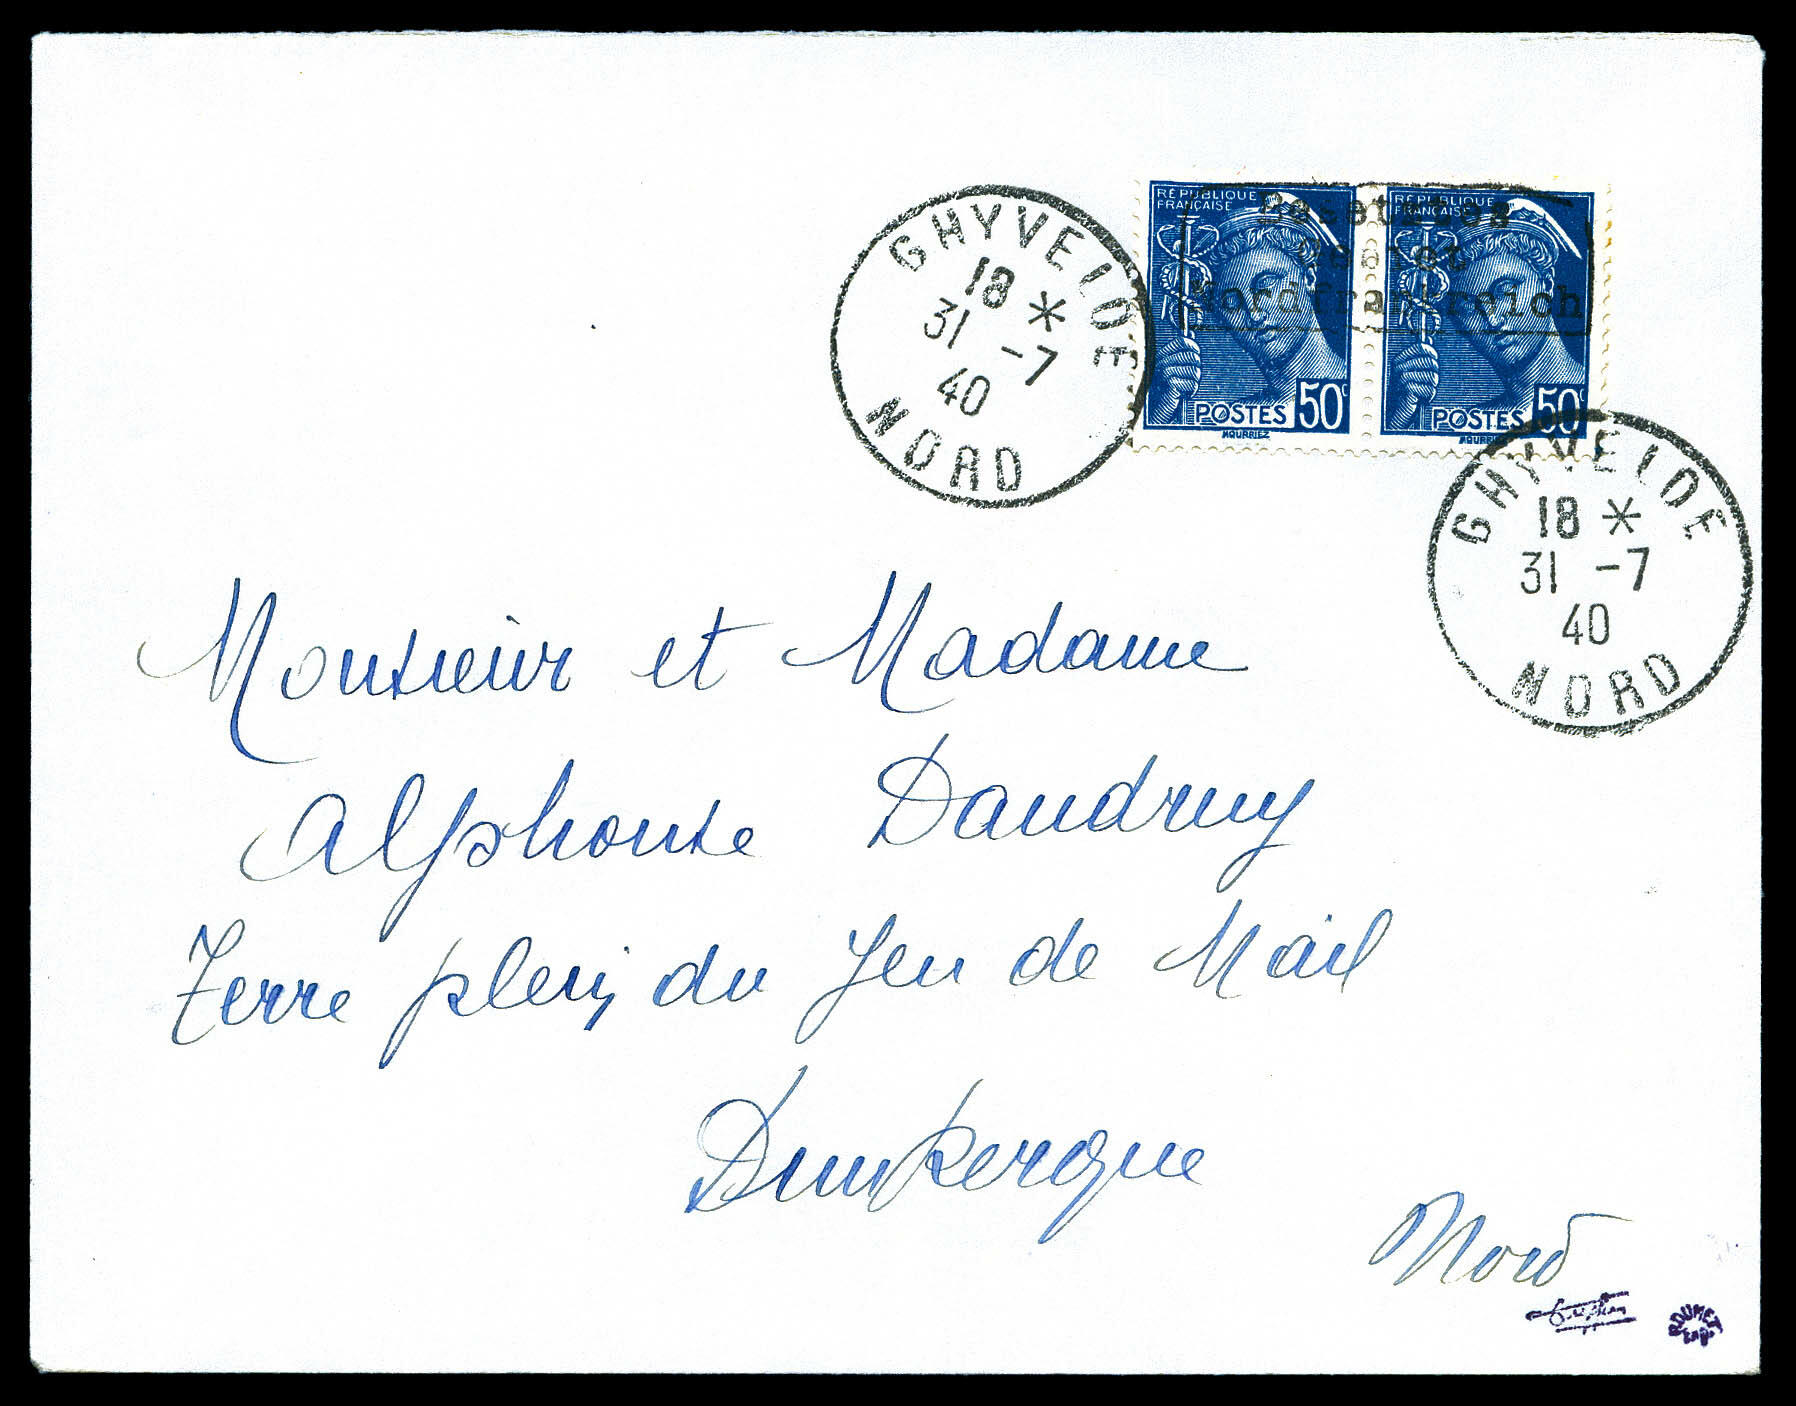 RÉPUBLIQUE
FRANÇAISE
POSTES 50c
MOURRIEZ
RÉPUBLIQUE
FRANÇAISE
POSTES 50c
MOURRIEZ
Besetztes
Gebiet
Nordfrankreich
GHYVELDE
18 *
31 -7
40
NORD
GHYVELDE
18 *
31 -7
40
NORD
Monsieur et Madame
Alphonse Dandruy
Terre plein du Jeu de Mail
Dunkerque
Nord
ROUMET